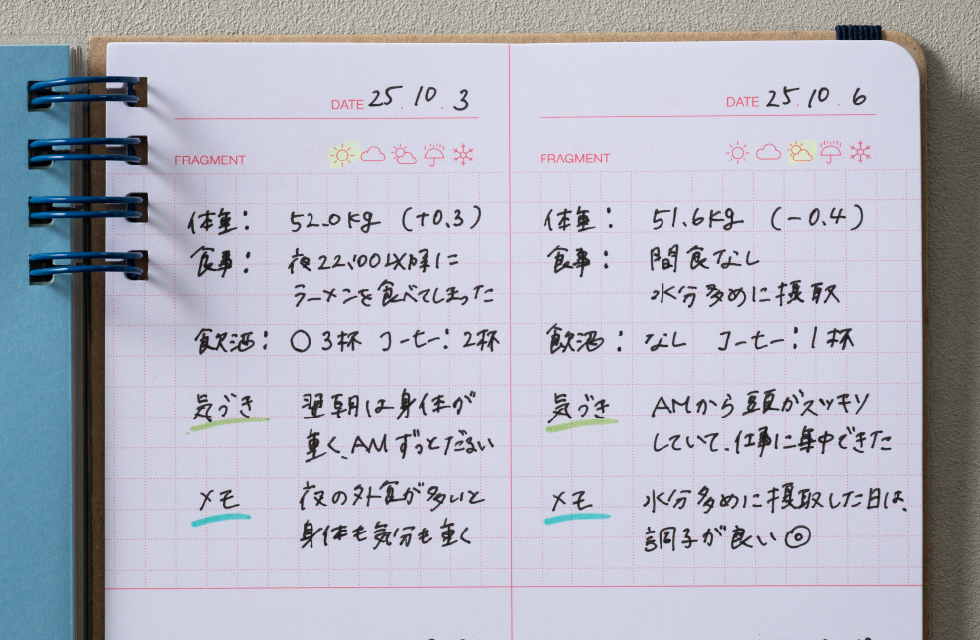 DATE 25. 10. 3
FRAGMENT
体重: 52.0kg (+0.3)
食事: 夜22:00以降に
ラーメンを食べてしまった
飲酒: ○ 3杯 コーヒー: 2杯
気づき 翌朝は身体が
重く、AMずっとだるい
メモ 夜の外食が多いと
身体も気分も重く
DATE 25. 10. 6
FRAGMENT
体重: 51.6kg (-0.4)
食事: 間食なし
水分多めに摂取
飲酒: なし コーヒー: 1杯
気づき AMから頭がスッキリ
していて、仕事に集中できた
メモ 水分多めに摂取した日は、
調子が良い◎